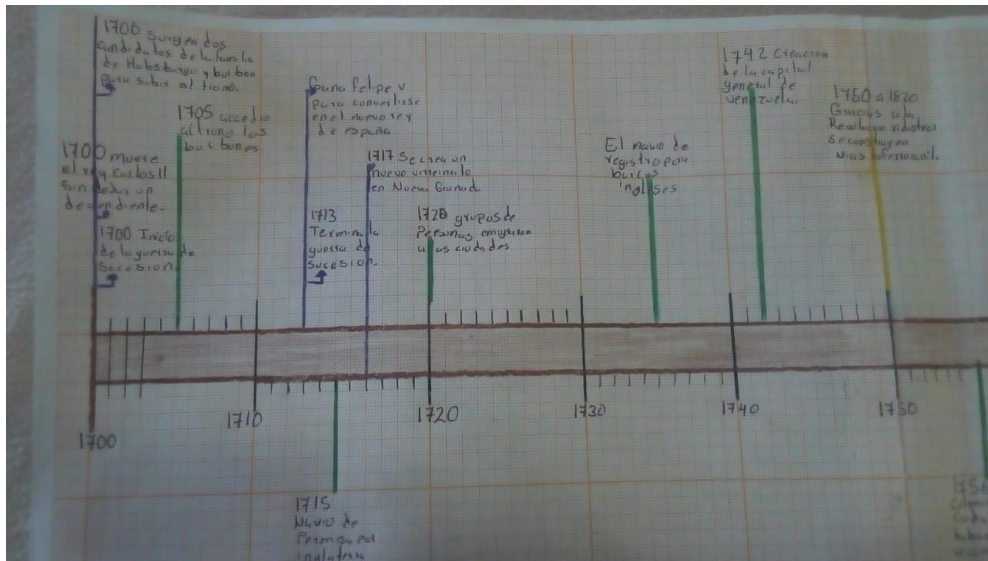 1700 Surgen dos
candidatos de la familia
de Habsburgo y borbon
para subir al trono.
1705 accedio
al trono los
borbones
1700 muere
el rey Carlos II
sin dejar un
decendiente.
1700 Inicio
de la guerra de
Sucesion.
Gana Felipe V
para convertirse
en el nuevo rey
de españa
1713
Termina la
guerra de
sucesion.
1717 Se crea un
nuevo virreinato
en Nueva Granad
1720 grupos de
Personas emigraron
a las ciudades
El navio de
registro para
barcos
ingleses
1742 Creacion
de la capital
general de
venezuela.
1760 a 1820
Gracias a la
Revolucion industrial
se construyen
vias
1700
1710
1720
1730
1740
1750
1715
Navio de
Permiso por
inglaterra